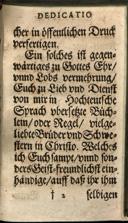 DEDICATIO
cher in öffentlichen Druck
verfertigen.
Ein solches ist gegen-
wärtiges zu Gottes Ehr/
vnnd Lobs vermehrung/
Euch zu Lieb vnd Dienst
von mir in Hochteutsche
Sprach vbersetzte Büch-
lein/ oder Regel/ vielge-
liebte Brüder vnd Schwe-
stern in Christo. Welches
ich Euch sampt/ vnnd son-
ders Geist-freundlichst ein-
händige/ auff daß ihr ihm
† 2 selbigen